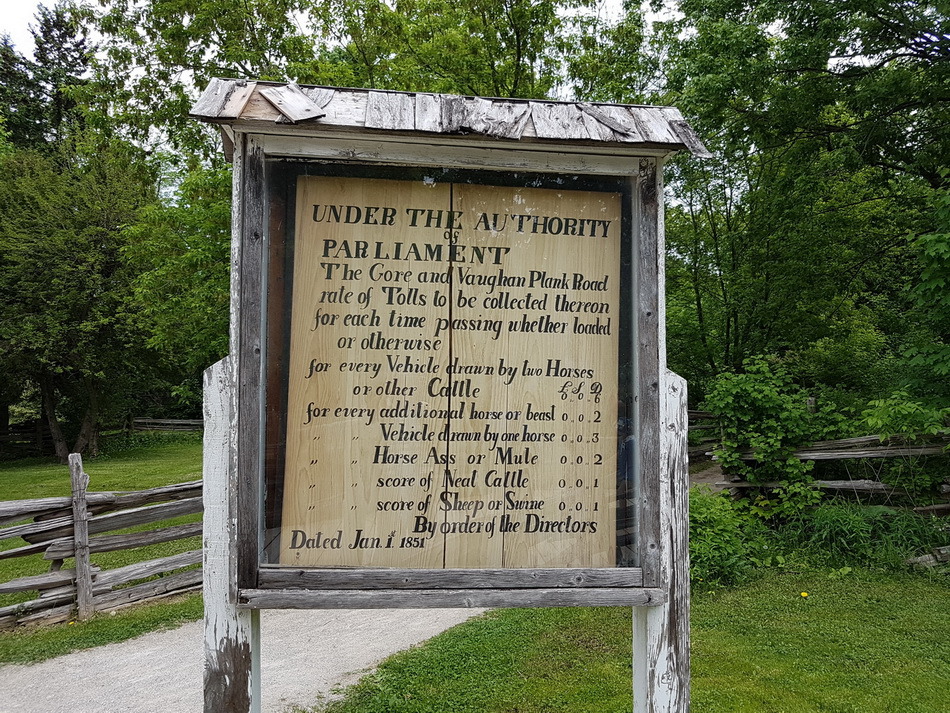 UNDER THE AUTHORITY
of
PARLIAMENT
The Gore and Vaughan Plank Road
rate of Tolls to be collected thereon
for each time passing whether loaded
or otherwise
for every Vehicle drawn by two Horses
or other Cattle £ S D 0 . 0 . 6
for every additional horse or beast 0 . 0 . 2
" " Vehicle drawn by one horse 0 . 0 . 3
" " Horse Ass or Mule 0 . 0 . 2
" " score of Neat Cattle 0 . 0 . 1
" " score of Sheep or Swine 0 . 0 . 1
By order of the Directors
Dated Jan. 1st 1851